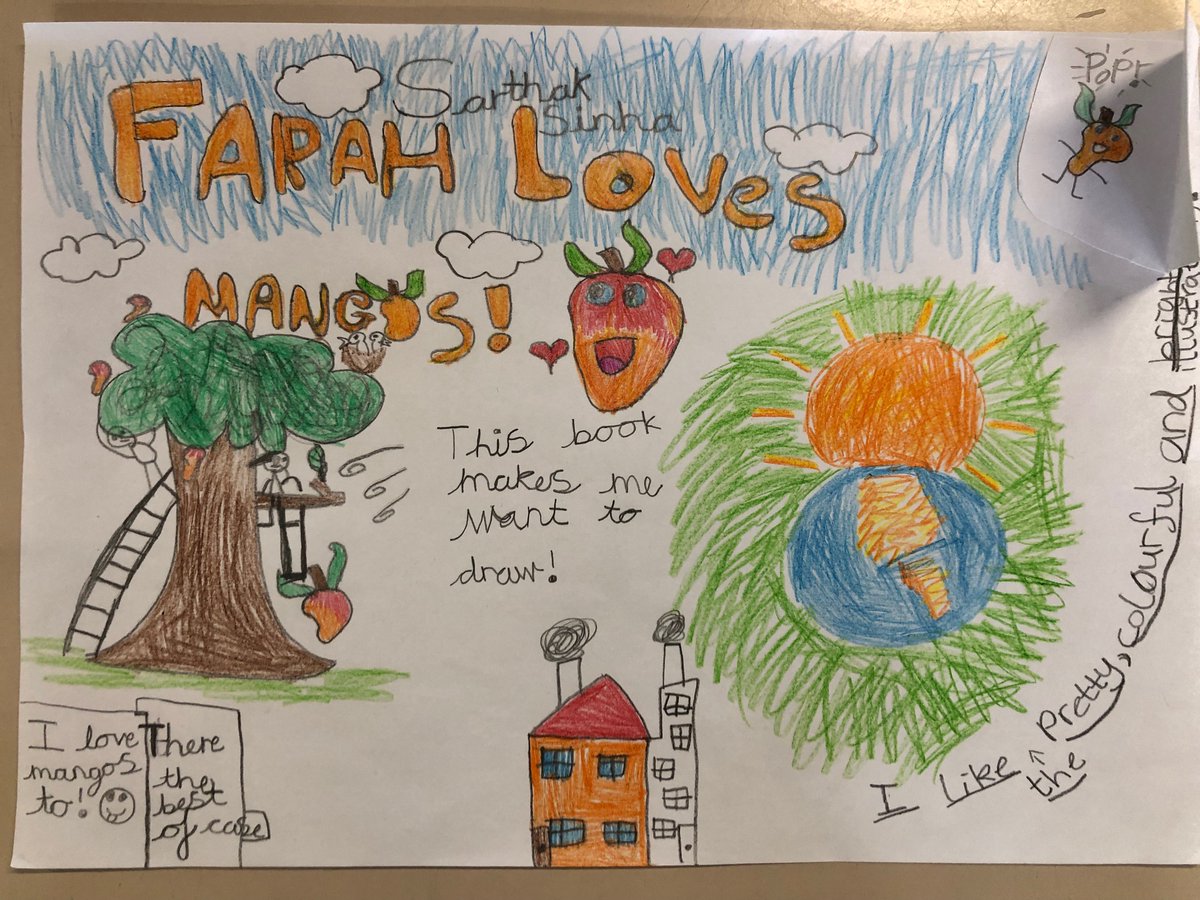 FARAH LOVES
Sarthak
Sinha
MANGOS!
POP!
This book
makes me
want to
draw!
I love
mangos
to!
There
the
best
of case
I like the pretty, colourful and bright